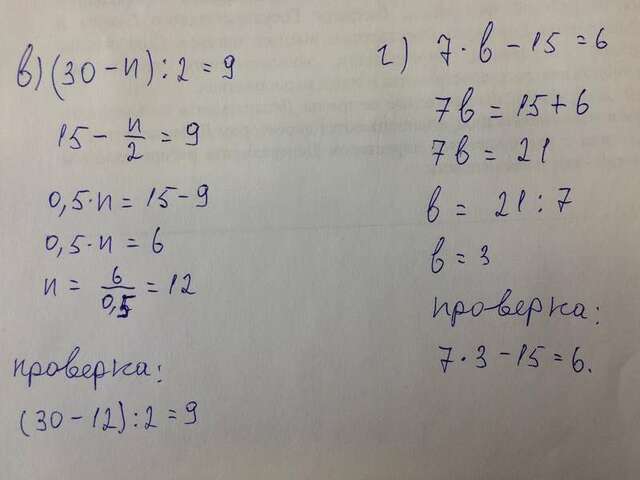 в) (30 - n) : 2 = 9
15 - n/2 = 9
0,5 · n = 15 - 9
0,5 · n = 6
n = 6/0,5 = 12
проверка:
(30 - 12) : 2 = 9
г) 7 · b - 15 = 6
7b = 15 + 6
7b = 21
b = 21 : 7
b = 3
проверка:
7 · 3 - 15 = 6.